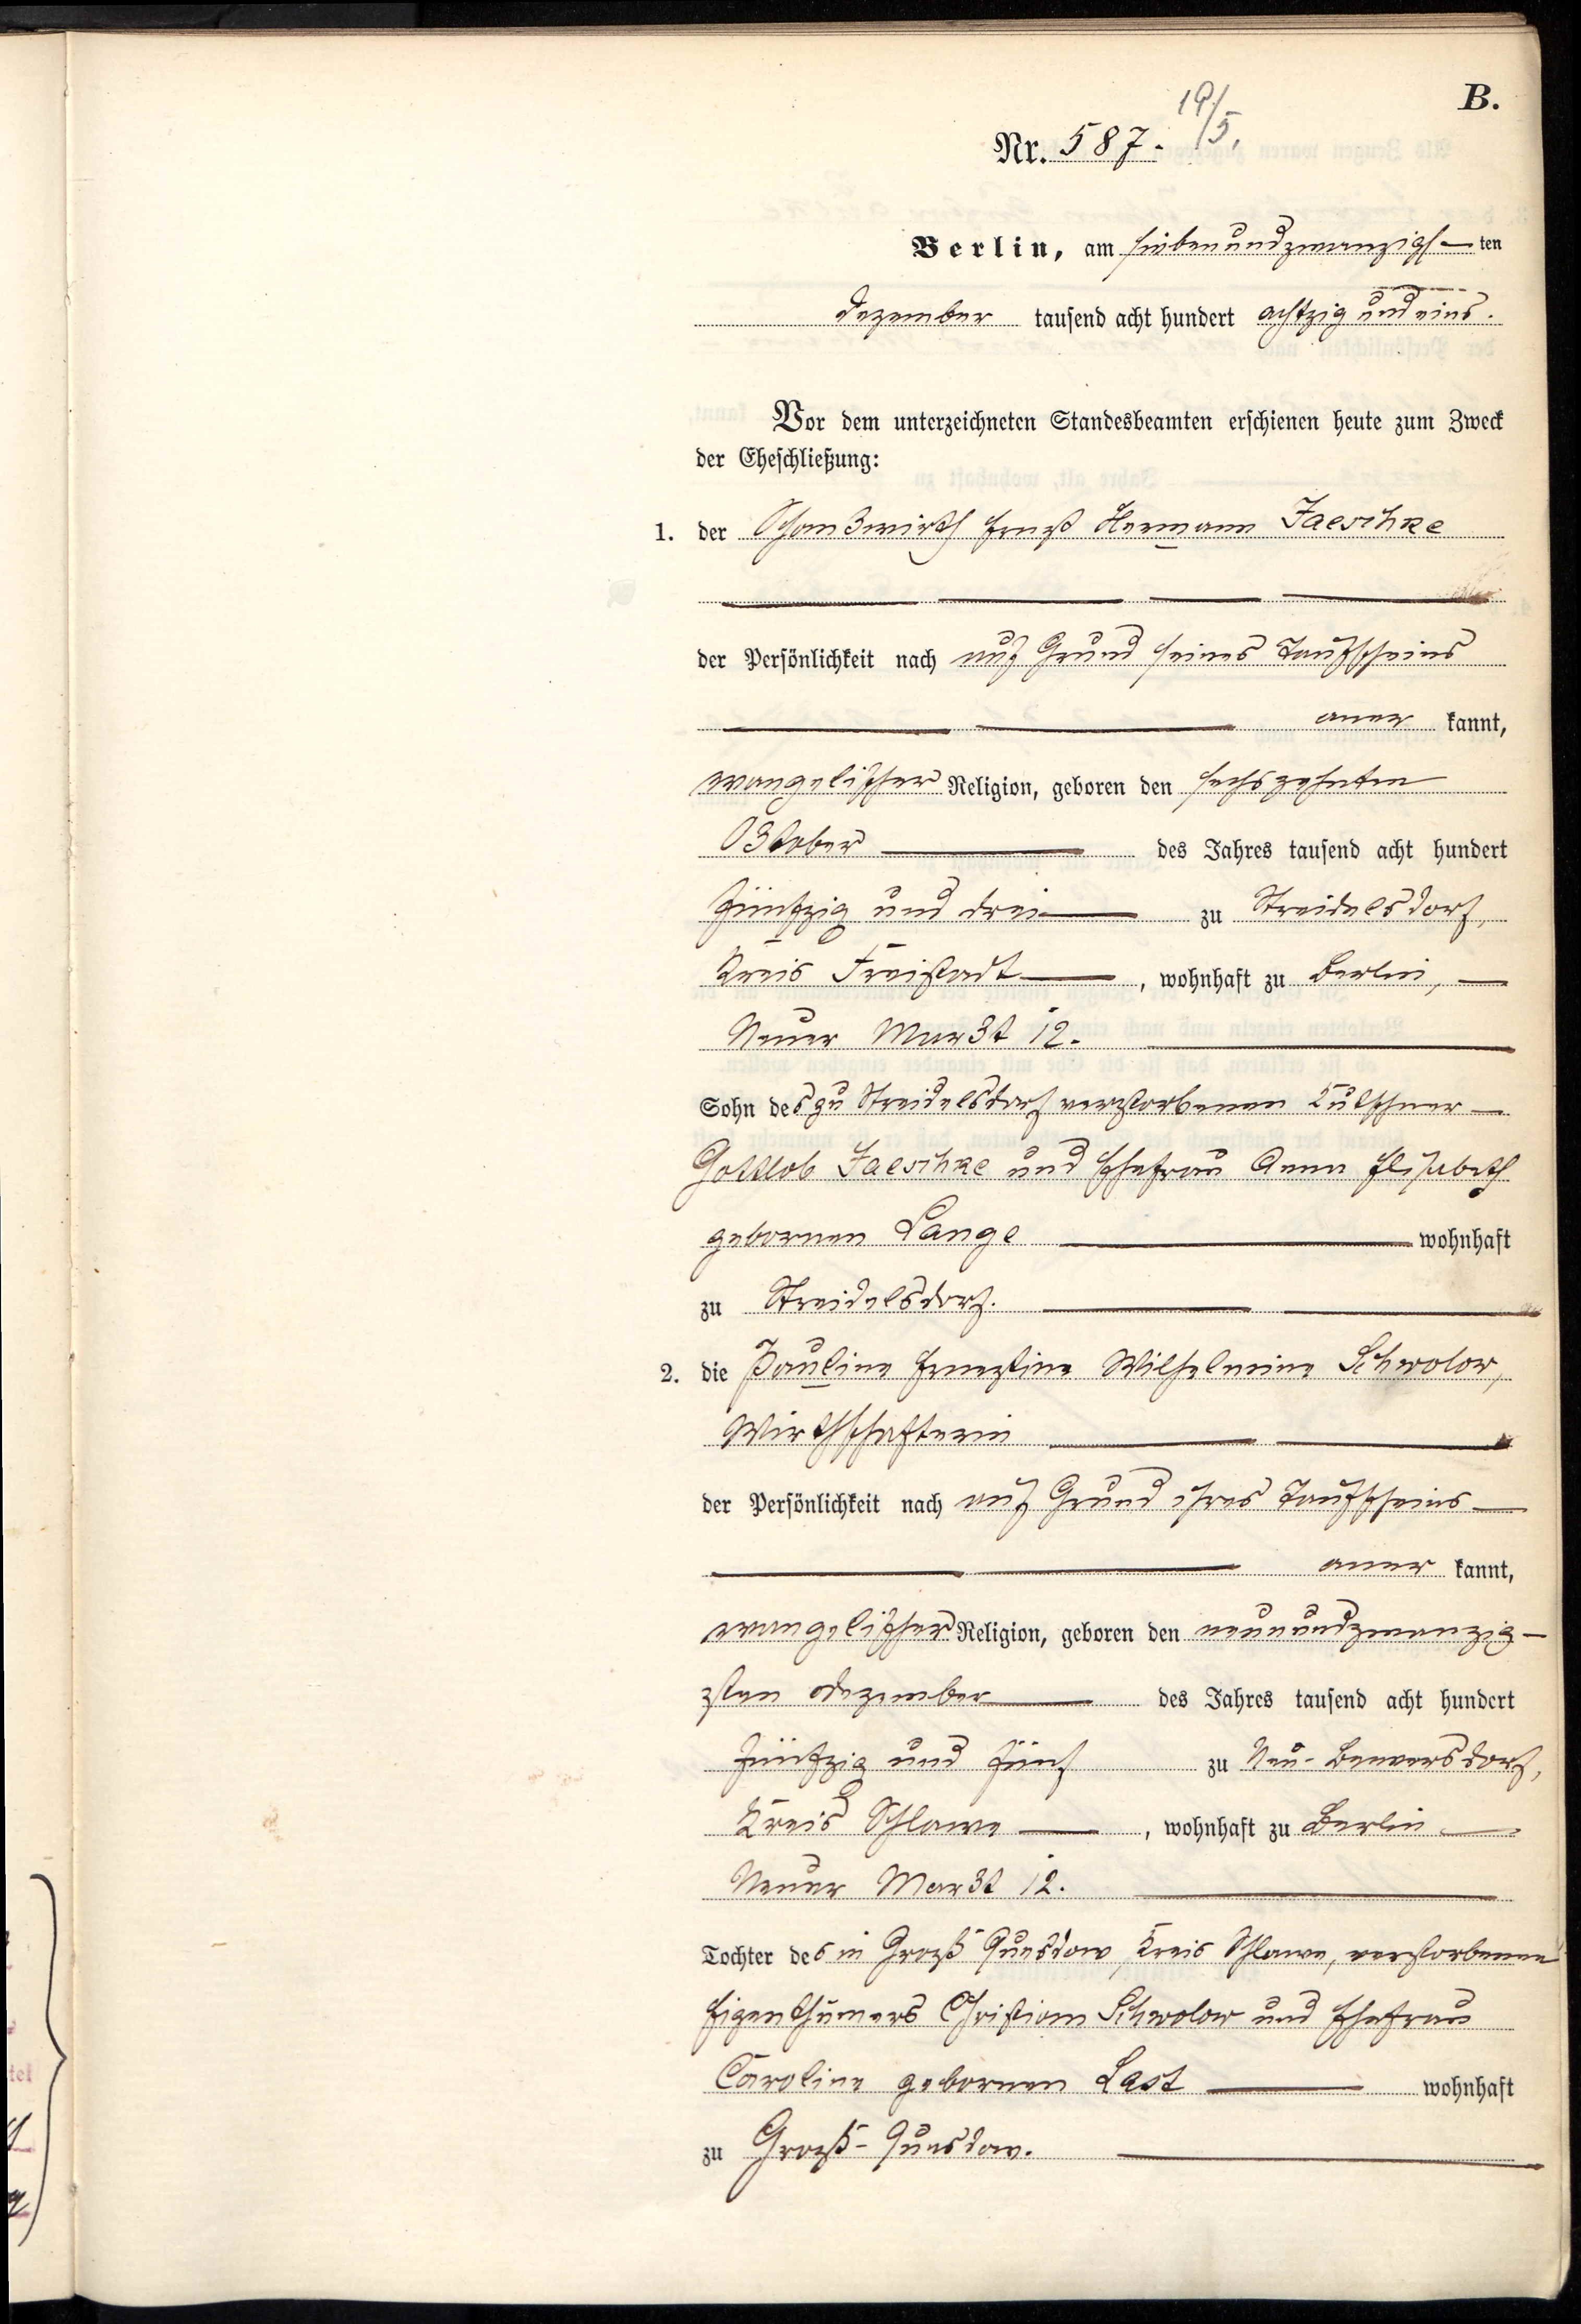 B.
19/5.
Nr. 587.
Berlin, am siebenundzwanzigs ten
Dezember tausend acht hundert achtzig und eins.
Vor dem unterzeichneten Standesbeamten erschienen heute zum Zweck
der Eheschließung:
1. der Schankwirth Ernst Hermann Jaeschke
der Persönlichkeit nach auf Grund seines Taufscheins
aner kannt,
evangelischer Religion, geboren den sechszehnten
Oktober des Jahres tausend acht hundert
fünfzig und drei zu Streidelsdorf,
Kreis Freistadt, wohnhaft zu Berlin,
Neuer Markt 12.
Sohn des zu Streidelsdorf verstorbenen Kutschner
Gottlob Jaeschke und Ehefrau Anna Elisabeth
gebornen Lange wohnhaft
zu Streidelsdorf.
2. die Pauline Ernestine Wilhelmine Schwolow,
Wirthschafterin
der Persönlichkeit nach auf Grund ihres Taufscheins
aner kannt,
evangelischer Religion, geboren den neunundzwanzig-
sten Dezember des Jahres tausend acht hundert
fünfzig und fünf zu Neu-Bewersdorf,
Kreis Schlawe, wohnhaft zu Berlin
Neuer Markt 12.
Tochter des in Groß Quesdow, Kreis Schlawe, verstorbenen
Eigenthümers Christian Schwolow und Ehefrau
Caroline gebornen Last wohnhaft
zu Groß-Quesdow.